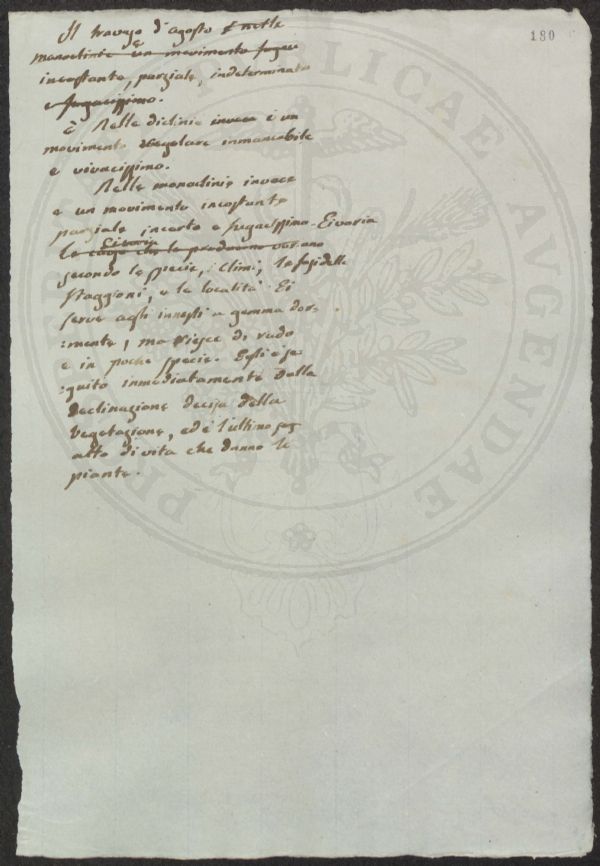 180
Il travaso d'agosto è nelle
monoclinie è un movimento fugace
incostante, parziale, indeterminato
e fugacissimo.
è Nelle diclinie invece è un
movimento regolare immancabile
e vivacissimo.
Nelle monoclinie invece
è un movimento incostante
parziale incerto e fugacissimo. Ei varia
Ei varia
le cause che lo producono variano
secondo le specie, i climi, le fasi delle
Staggioni, e le località. Ei
serve agli innesti a gemma dor=
:mente, ma riesce di rado
e in poche specie. Egli è se
:guito immediatamente dalla
Declinazione decisa della
Vegetazione, ed è l'ultimo
atto di vita che danno le
piante.
PUBLICAE
AUGENDAE